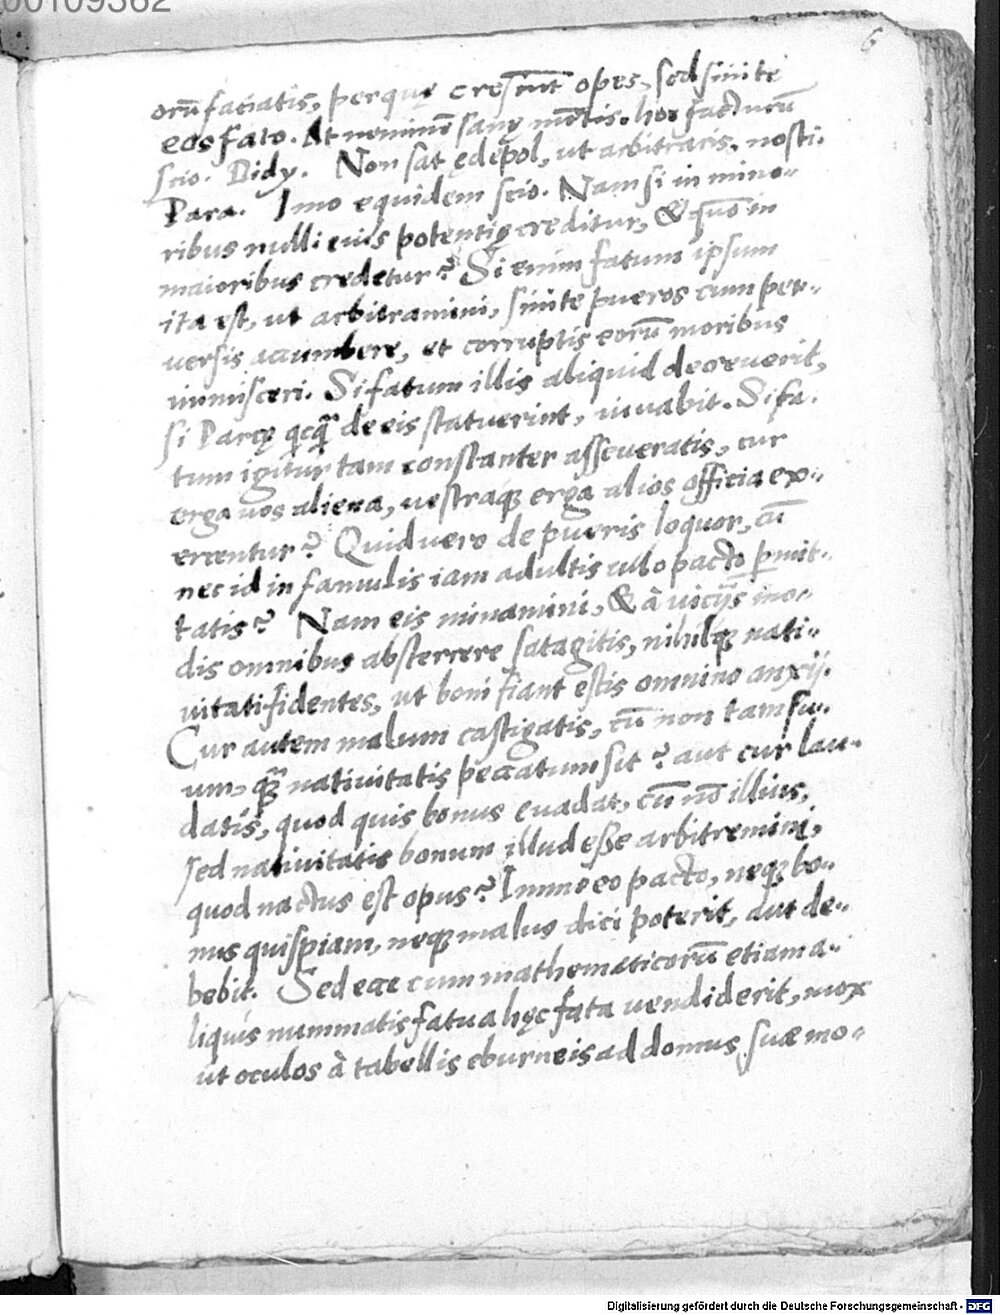 00109362
6
orū faciatis, perquę crescūt opes, sed sinite
eos fato. At neminē sanę mētis hoc facturū
scio. Didy. Non sat ędepol, ut arbitraris, nosti.
Para. Imo equidem scio. Nam si in mino-
ribus nulli eius potentię creditur, & quō in
maioribus credetur? Si enim fatum ipsum
ita est, ut arbitramini, sinite pueros cum per-
versis accumbere, et corruptis eorū moribus
immisceri. Si fatum illis aliquid decreverit,
si Parcę de eis statuerint, iuvabit. Si fa-
tum igitur tam constanter asseveratis, cur
erga vos aliena, vestraq; erga alios officia ex-
ercentur? Quid vero de pueris loquor, cū
nec id in famulis iam adultis ullo pacto p̄mit-
tatis? Nam eis minamini, & à vicijs mo-
dis omnibus absterrere satagitis, nihilq; nati-
vitati fidentes, ut boni fiant estis omnino anxij.
Cur autem malum castigatis, cū non tam su-
um, nativitatis peccatum sit? aut cur lau-
datis, quod quis bonus evadat, cū nō illius,
sed nativitatis bonum illud esse arbitremini,
quod nactus est opus? Immo eo pacto, neq; bo-
nus quispiam, neq; malus dici poterit, aut de-
bebit. Sed ecce cum mathematicorū etiam a-
liquis nummatis fatua hęc fata vendiderit, mox
ut oculos à tabellis eburneis ad domus suæ mo-
Digitalisierung gefördert durch die Deutsche Forschungsgemeinschaft - DFG